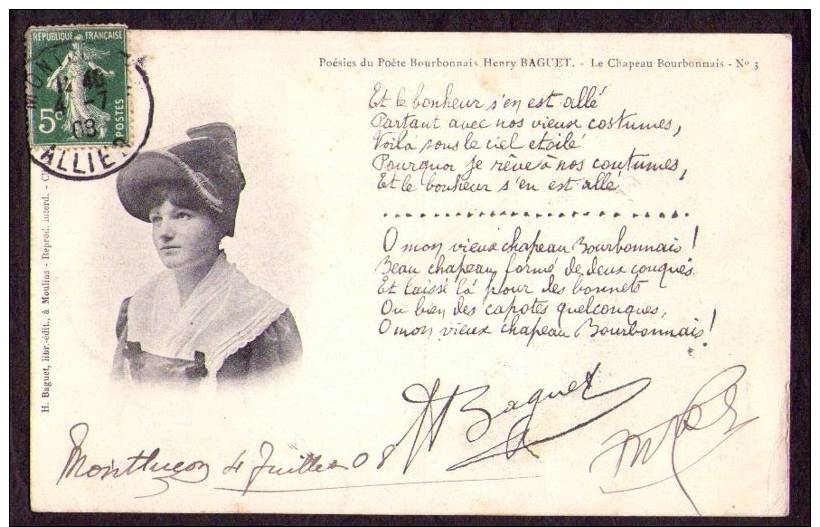 RÉPUBLIQUE FRANÇAISE
5c
POSTES
MONT
4 -7
08
ALLIER
Poésies du Poète Bourbonnais Henry BAGUET. - Le Chapeau Bourbonnais - No 3
Et le bonheur s'en est allé
Partant avec nos vieux costumes,
Voilà sous le ciel étoilé
Pourquoi je rêve à nos coutumes,
Et le bonheur s'en est allé
O mon vieux chapeau Bourbonnais!
Beau chapeau, formé de deux conques
Et laissé là pour des bonnets
Ou bien des capotes quelconques,
O mon vieux chapeau Bourbonnais!
H Baguet
H. Baguet, libr.-édit., à Moulins - Reprod. interd.
Montluçon 4 Juillet 08